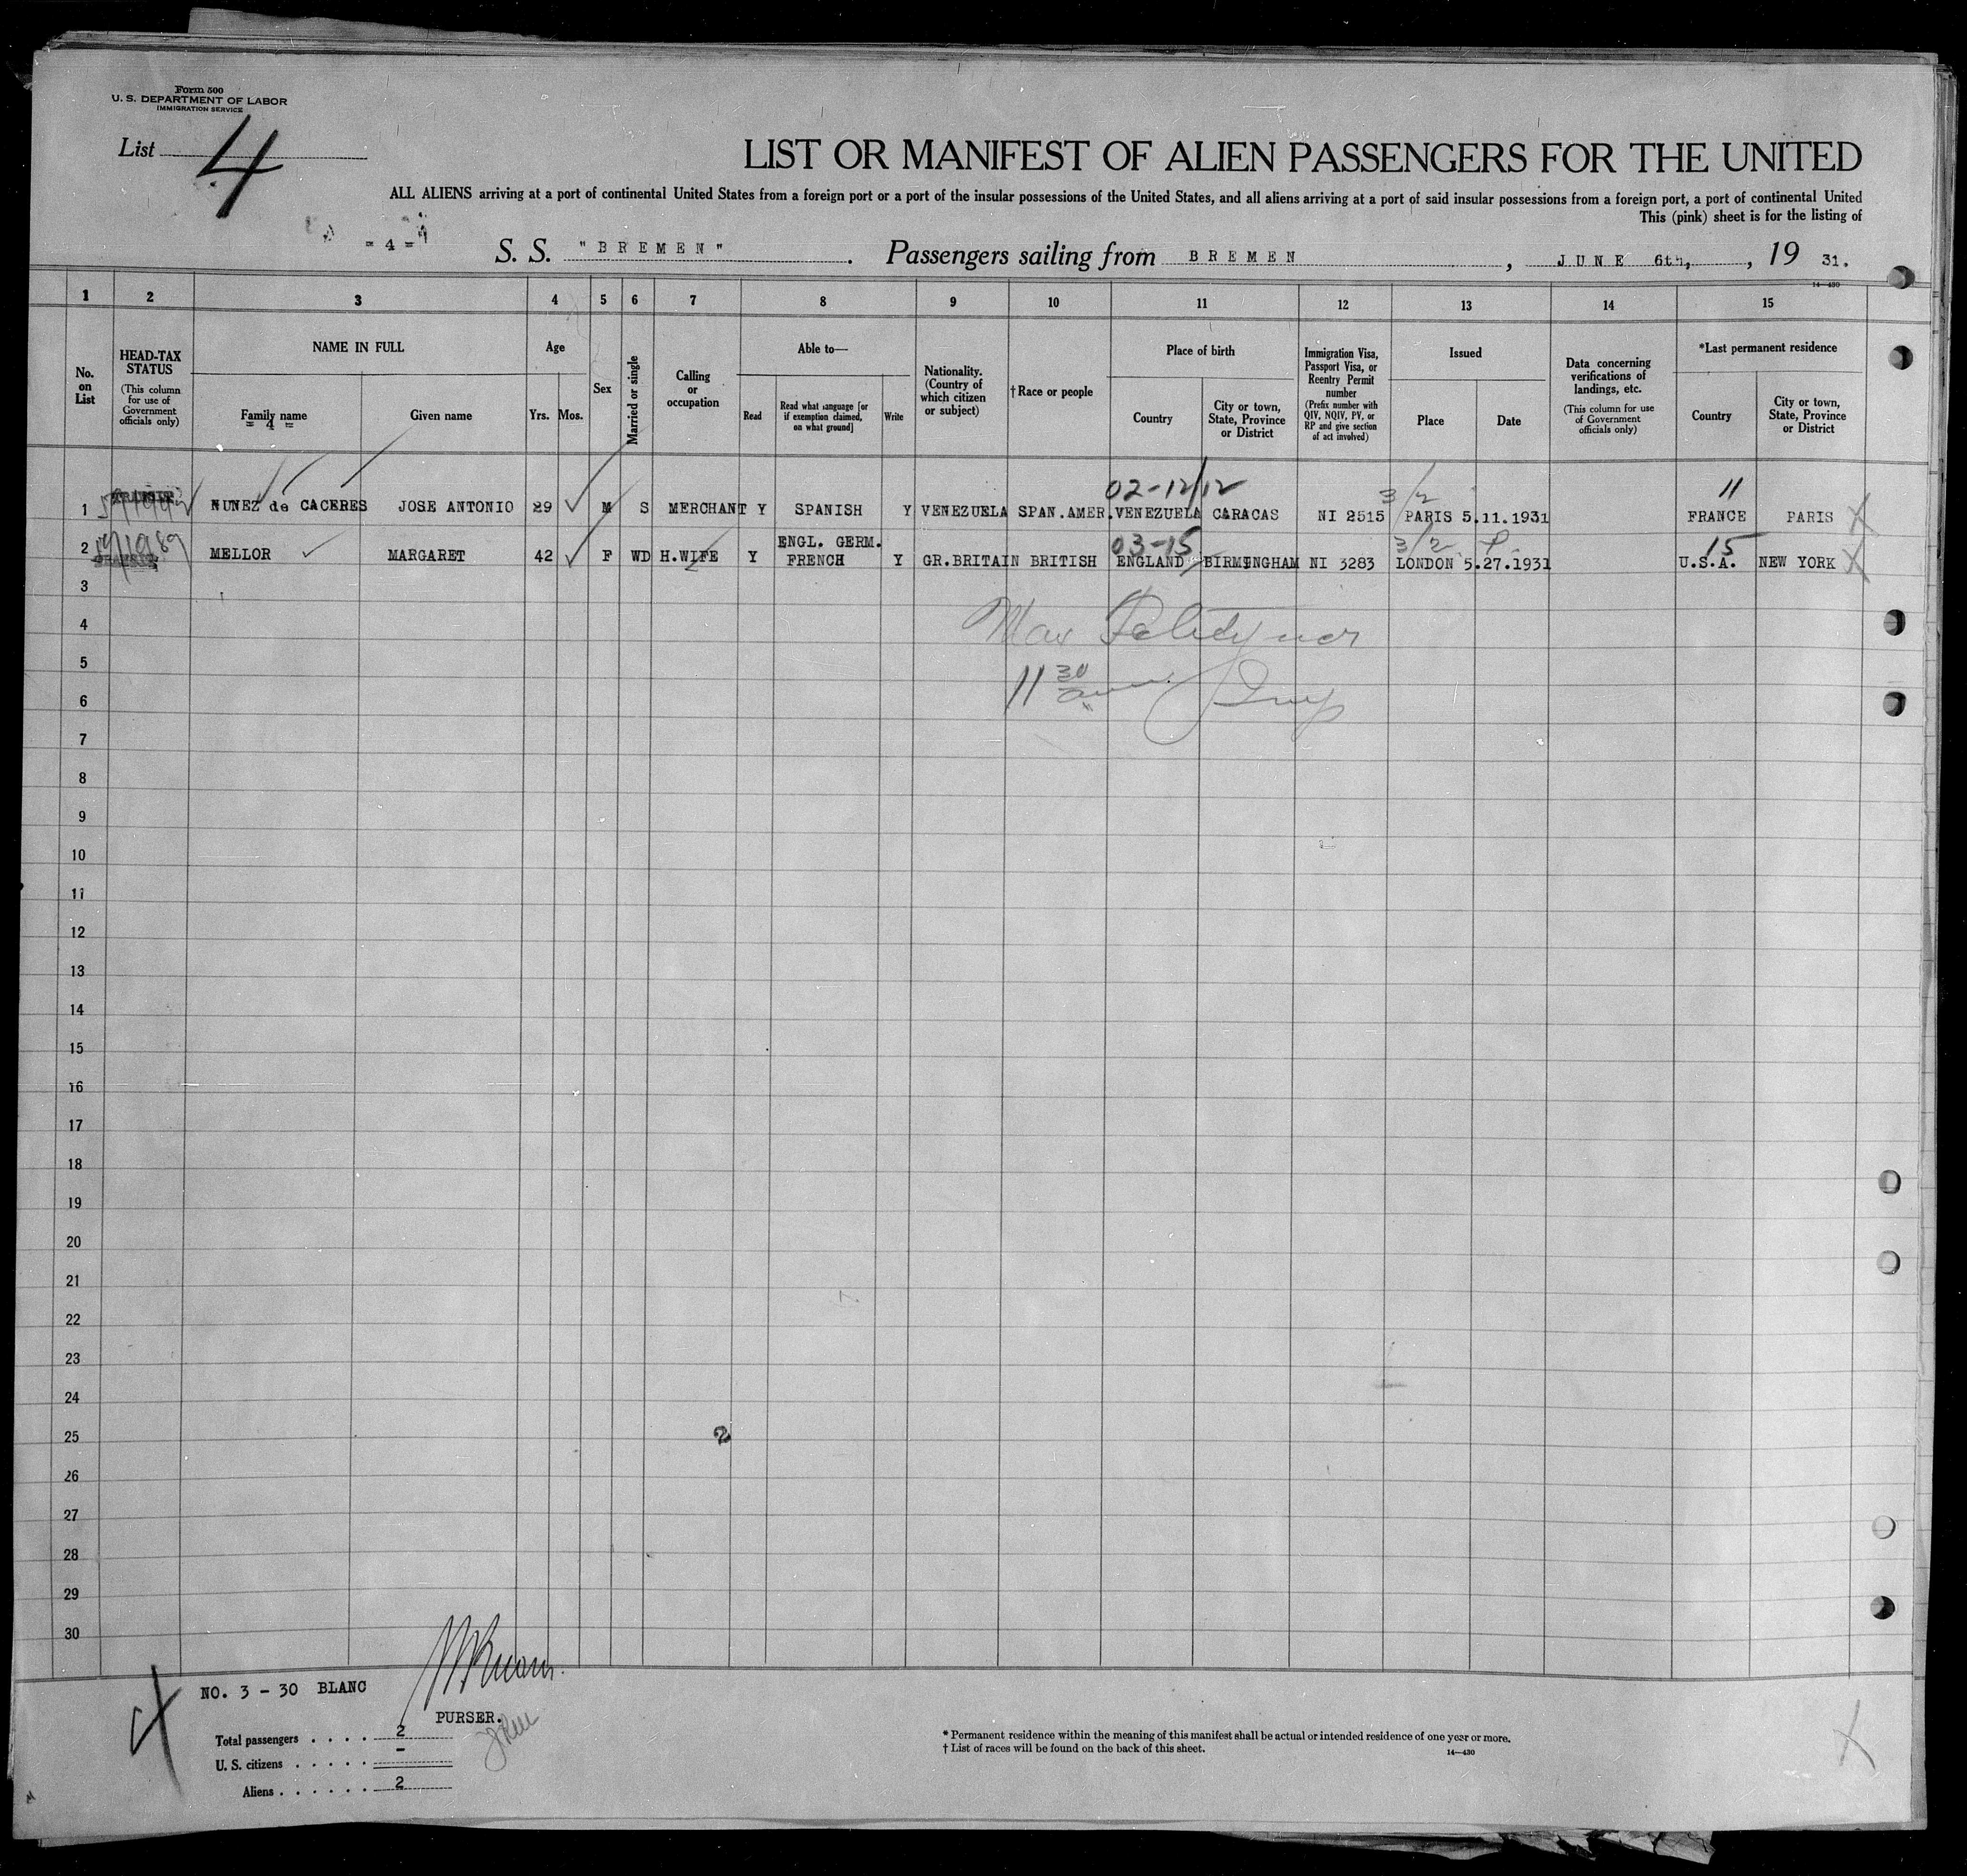 Form 500
U. S. DEPARTMENT OF LABOR
IMMIGRATION SERVICE
List 4
LIST OR MANIFEST OF ALIEN PASSENGERS FOR THE UNITED
ALL ALIENS arriving at a port of continental United States from a foreign port or a port of the insular possessions of the United States, and all aliens arriving at a port of said insular possessions from a foreign port, a port of continental United
This (pink) sheet is for the listing of
= 4 =
S. S. "BREMEN". Passengers sailing from BREMEN, JUNE 6th,, 19 31.
14—430
1 2 3 4 5 6 7 8 9 10 11 12 13 14 15
No. on List
HEAD-TAX STATUS
(This column for use of Government officials only)
NAME IN FULL
Family name
= 4 =
Given name
Age
Yrs. Mos.
Sex
Married or single
Calling or occupation
Able to—
Read
Read what language [or if exemption claimed, on what ground]
Write
Nationality. (Country of which citizen or subject)
†Race or people
Place of birth
Country
City or town, State, Province or District
Immigration Visa, Passport Visa, or Reentry Permit number
(Prefix number with QIV, NQIV, PV, or RP and give section of act involved)
Issued
Place
Date
Data concerning verifications of landings, etc.
(This column for use of Government officials only)
*Last permanent residence
Country
City or town, State, Province or District
02-12/12 3/2 11
1 NUNEZ de CACERES JOSE ANTONIO 29 M S MERCHANT Y SPANISH Y VENEZUELA SPAN.AMER. VENEZUELA CARACAS NI 2515 PARIS 5.11.1931 FRANCE PARIS
03-15 3/2 15
2 MELLOR MARGARET 42 F WD H.WIFE Y ENGL. GERM. FRENCH Y GR.BRITAIN BRITISH ENGLAND BIRMINGHAM NI 3283 LONDON 5.27.1931 U.S.A. NEW YORK
3
4
5
11 30
6
7
8
9
10
11
12
13
14
15
16
17
18
19
20
21
22
23
24
25 2
26
27
28
29
30
NO. 3 - 30 BLANC
PURSER.
Total passengers . . . . 2
U. S. citizens . . . . . -
Aliens . . . . . . 2
* Permanent residence within the meaning of this manifest shall be actual or intended residence of one year or more.
† List of races will be found on the back of this sheet.
14—430